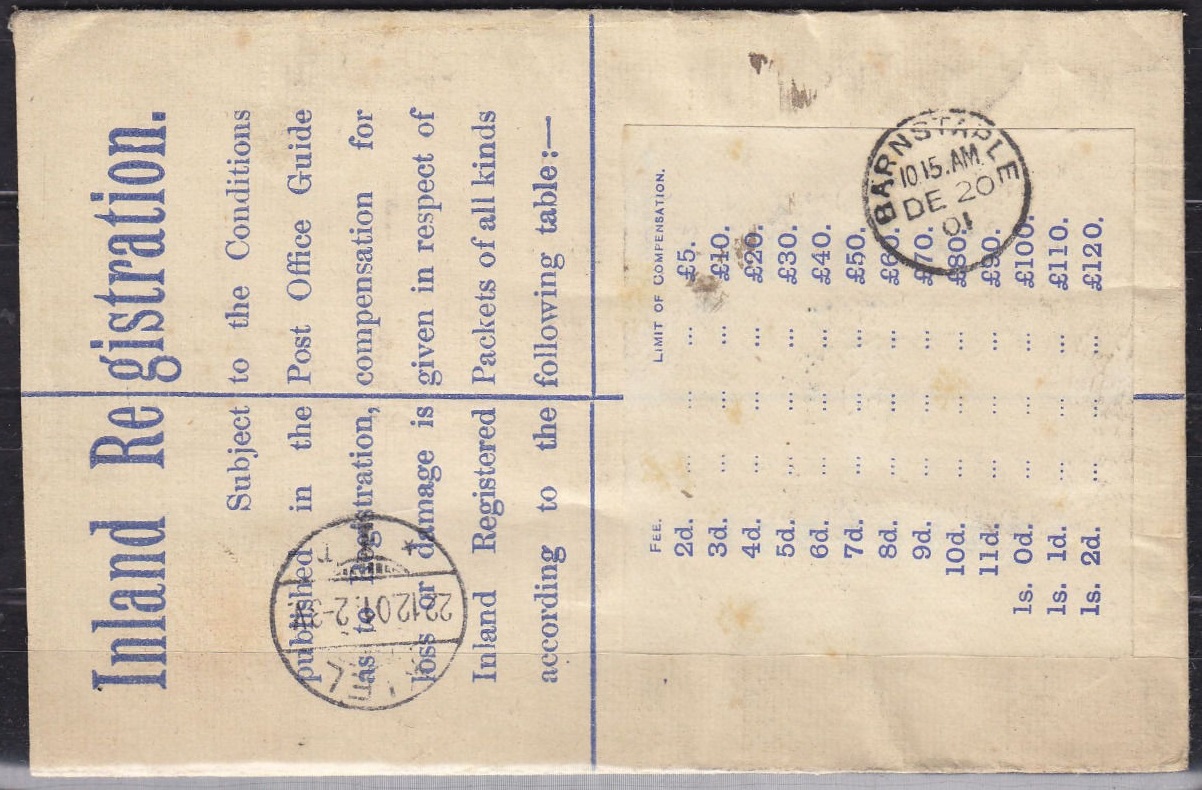 Inland Registration.
Subject to the Conditions
published in the Post Office Guide
as to Registration, compensation for
loss or damage is given in respect of
Inland Registered Packets of all kinds
according to the following table:—
FEE. LIMIT OF COMPENSATION.
2d. ... ... ... £5.
3d. ... ... ... £10.
4d. ... ... ... £20.
5d. ... ... ... £30.
6d. ... ... ... £40.
7d. ... ... ... £50.
8d. ... ... ... £60.
9d. ... ... ... £70.
10d. ... ... ... £80.
11d. ... ... ... £90.
1s. 0d. ... ... ... £100.
1s. 1d. ... ... ... £110.
1s. 2d. ... ... ... £120.
BARNSTAPLE
10 15. AM
DE 20
01
22.12.01. 2-3